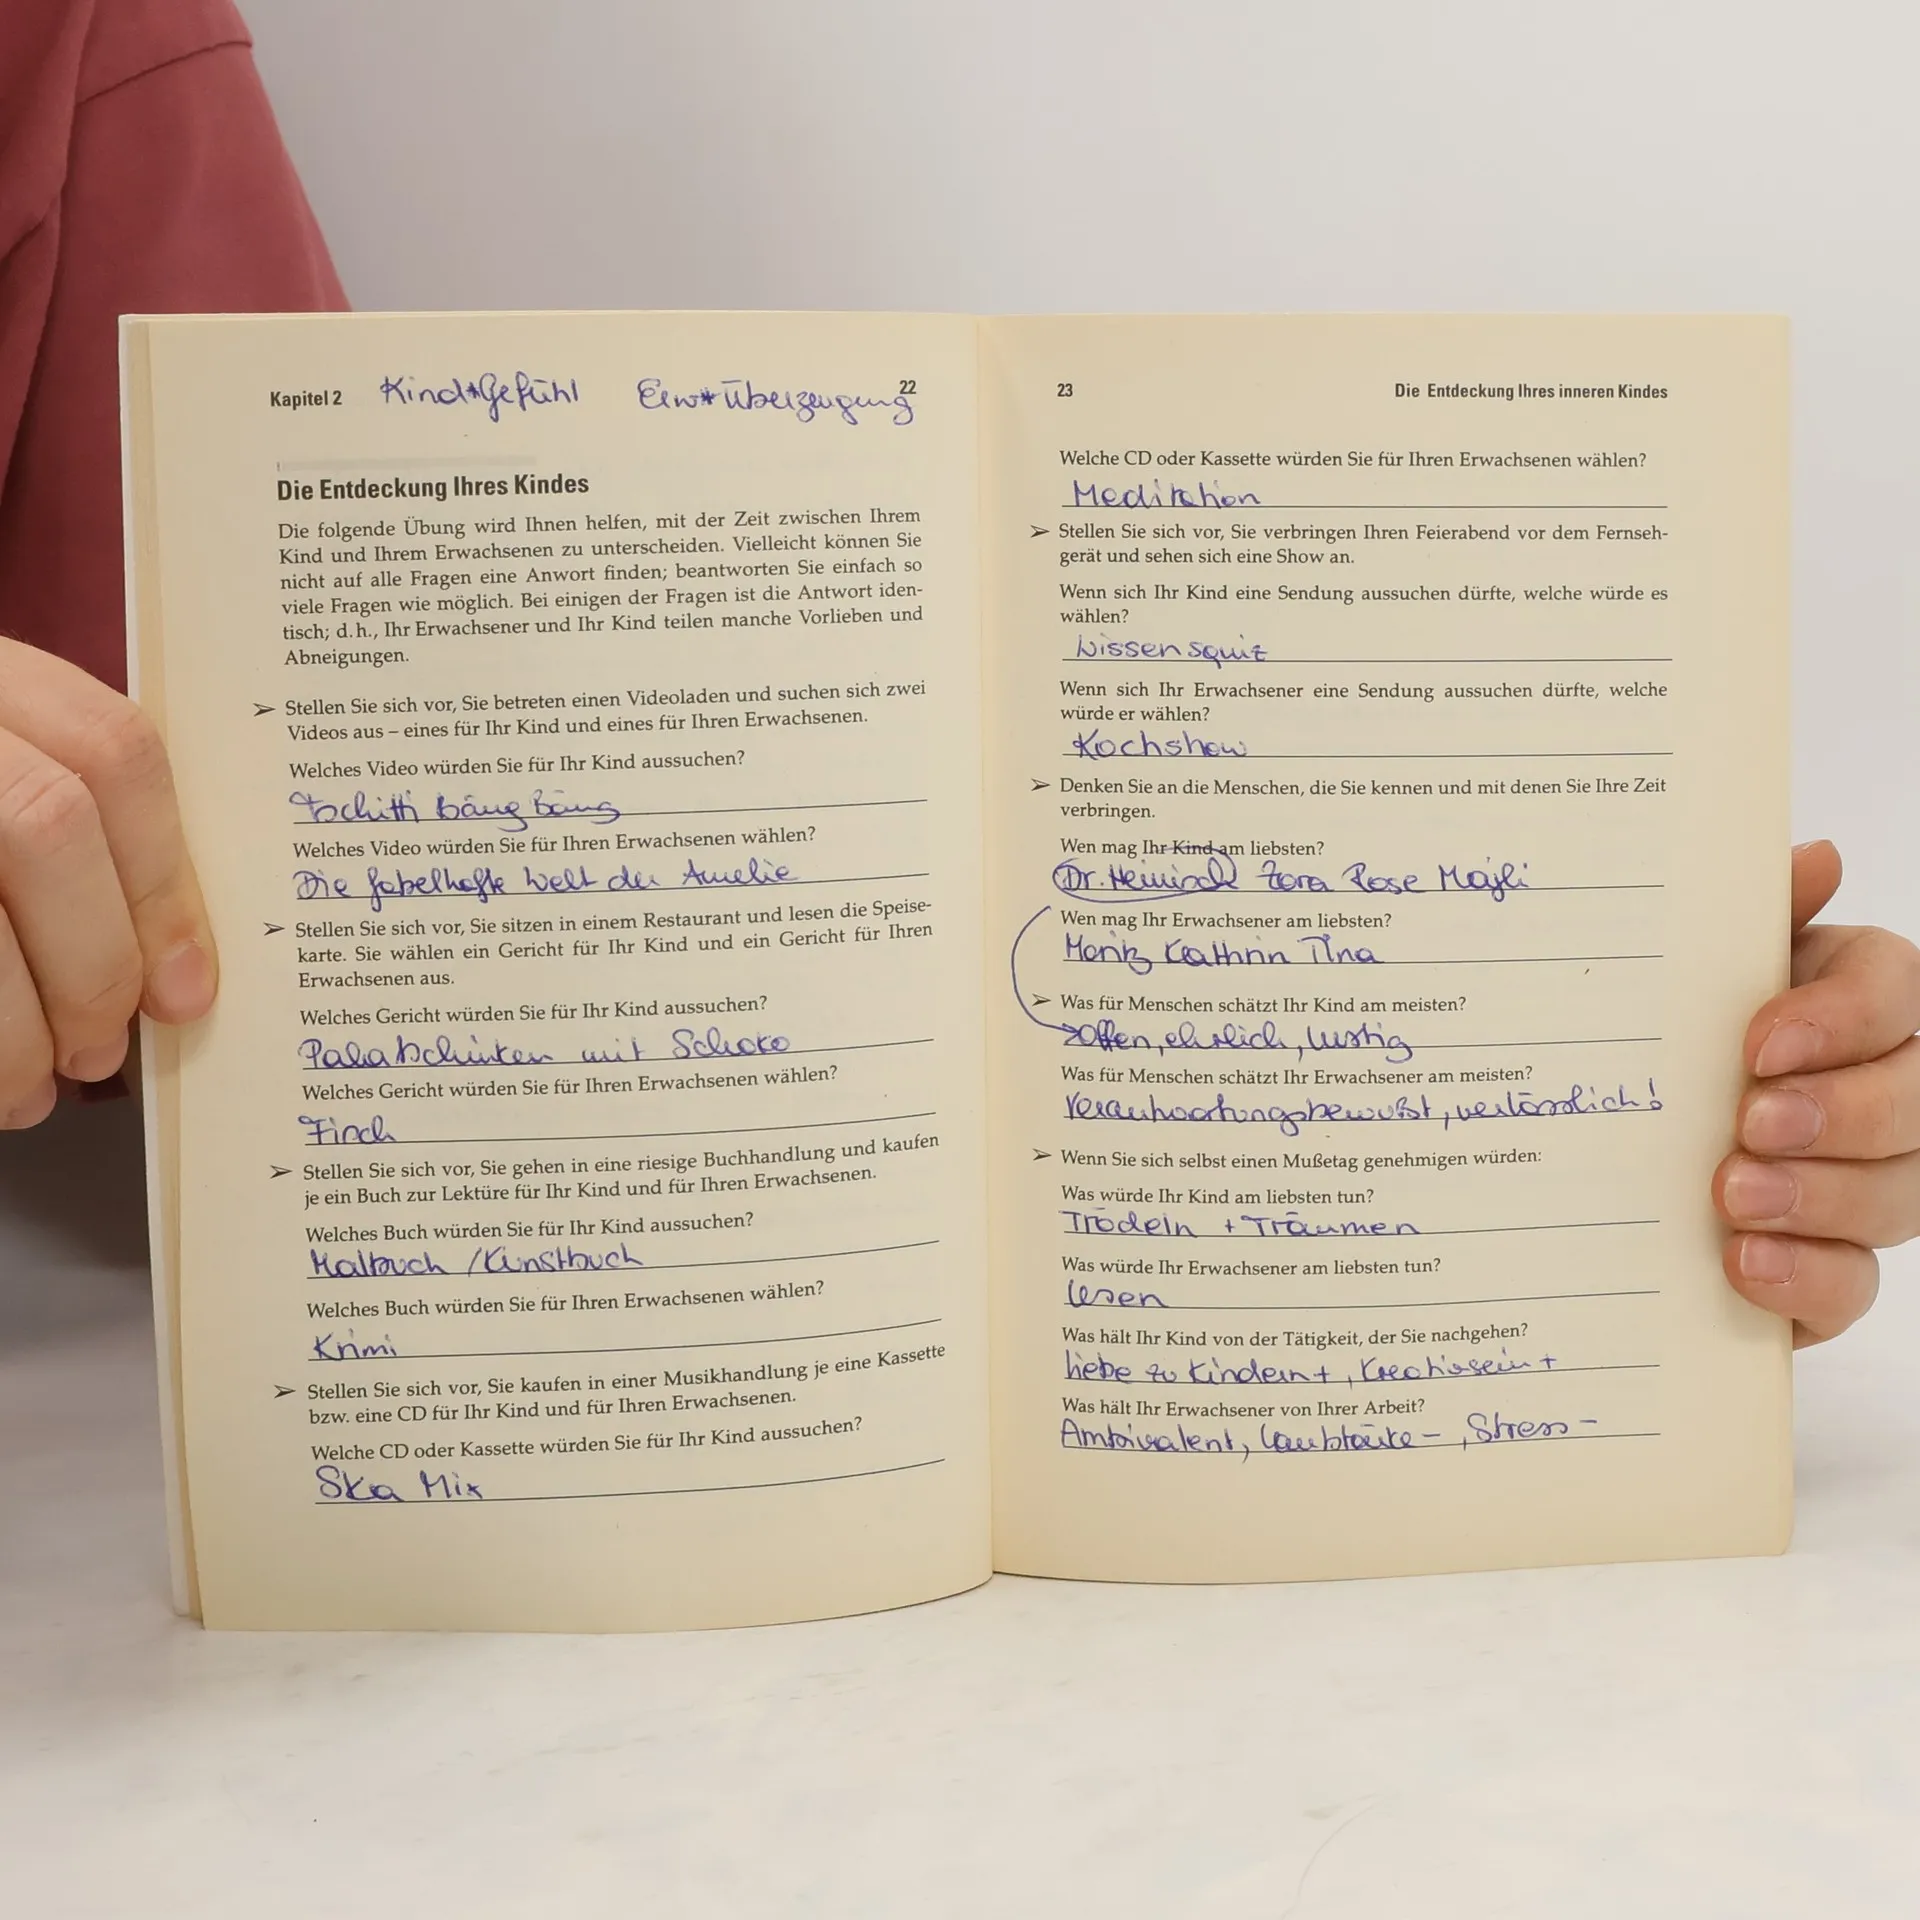 Kapitel 2 Kind*Gefühl Erw*Überzeugung 22
Die Entdeckung Ihres Kindes
Die folgende Übung wird Ihnen helfen, mit der Zeit zwischen Ihrem
Kind und Ihrem Erwachsenen zu unterscheiden. Vielleicht können Sie
nicht auf alle Fragen eine Anwort finden; beantworten Sie einfach so
viele Fragen wie möglich. Bei einigen der Fragen ist die Antwort iden-
tisch; d.h., Ihr Erwachsener und Ihr Kind teilen manche Vorlieben und
Abneigungen.
➢ Stellen Sie sich vor, Sie betreten einen Videoladen und suchen sich zwei
Videos aus – eines für Ihr Kind und eines für Ihren Erwachsenen.
Welches Video würden Sie für Ihr Kind aussuchen?
Tschitti Bäng Bäng
Welches Video würden Sie für Ihren Erwachsenen wählen?
Die fabelhafte Welt der Amelie
➢ Stellen Sie sich vor, Sie sitzen in einem Restaurant und lesen die Speise-
karte. Sie wählen ein Gericht für Ihr Kind und ein Gericht für Ihren
Erwachsenen aus.
Welches Gericht würden Sie für Ihr Kind aussuchen?
Palatschinken mit Schoko
Welches Gericht würden Sie für Ihren Erwachsenen wählen?
Fisch
➢ Stellen Sie sich vor, Sie gehen in eine riesige Buchhandlung und kaufen
je ein Buch zur Lektüre für Ihr Kind und für Ihren Erwachsenen.
Welches Buch würden Sie für Ihr Kind aussuchen?
Malbuch / Kunstbuch
Welches Buch würden Sie für Ihren Erwachsenen wählen?
Krimi
➢ Stellen Sie sich vor, Sie kaufen in einer Musikhandlung je eine Kassette
bzw. eine CD für Ihr Kind und für Ihren Erwachsenen.
Welche CD oder Kassette würden Sie für Ihr Kind aussuchen?
Ska Mix
23 Die Entdeckung Ihres inneren Kindes
Welche CD oder Kassette würden Sie für Ihren Erwachsenen wählen?
Meditation
➢ Stellen Sie sich vor, Sie verbringen Ihren Feierabend vor dem Fernseh-
gerät und sehen sich eine Show an.
Wenn sich Ihr Kind eine Sendung aussuchen dürfte, welche würde es
wählen?
Wissensquiz
Wenn sich Ihr Erwachsener eine Sendung aussuchen dürfte, welche
würde er wählen?
Kochshow
➢ Denken Sie an die Menschen, die Sie kennen und mit denen Sie Ihre Zeit
verbringen.
Wen mag Ihr Kind am liebsten?
Dr. Heinisch Zora Rose
Wen mag Ihr Erwachsener am liebsten?
Moritz Kathrin Tina
➢ Was für Menschen schätzt Ihr Kind am meisten?
Offen, ehrlich, lustig
Was für Menschen schätzt Ihr Erwachsener am meisten?
Verantwortungsbewußt, verlässlich!
➢ Wenn Sie sich selbst einen Mußetag genehmigen würden:
Was würde Ihr Kind am liebsten tun?
Trödeln + Träumen
Was würde Ihr Erwachsener am liebsten tun?
Lesen
Was hält Ihr Kind von der Tätigkeit, der Sie nachgehen?
Liebe zu Kindern +, Kreativsein +
Was hält Ihr Erwachsener von Ihrer Arbeit?
Ambivalent, Lautstärke -, Stress -